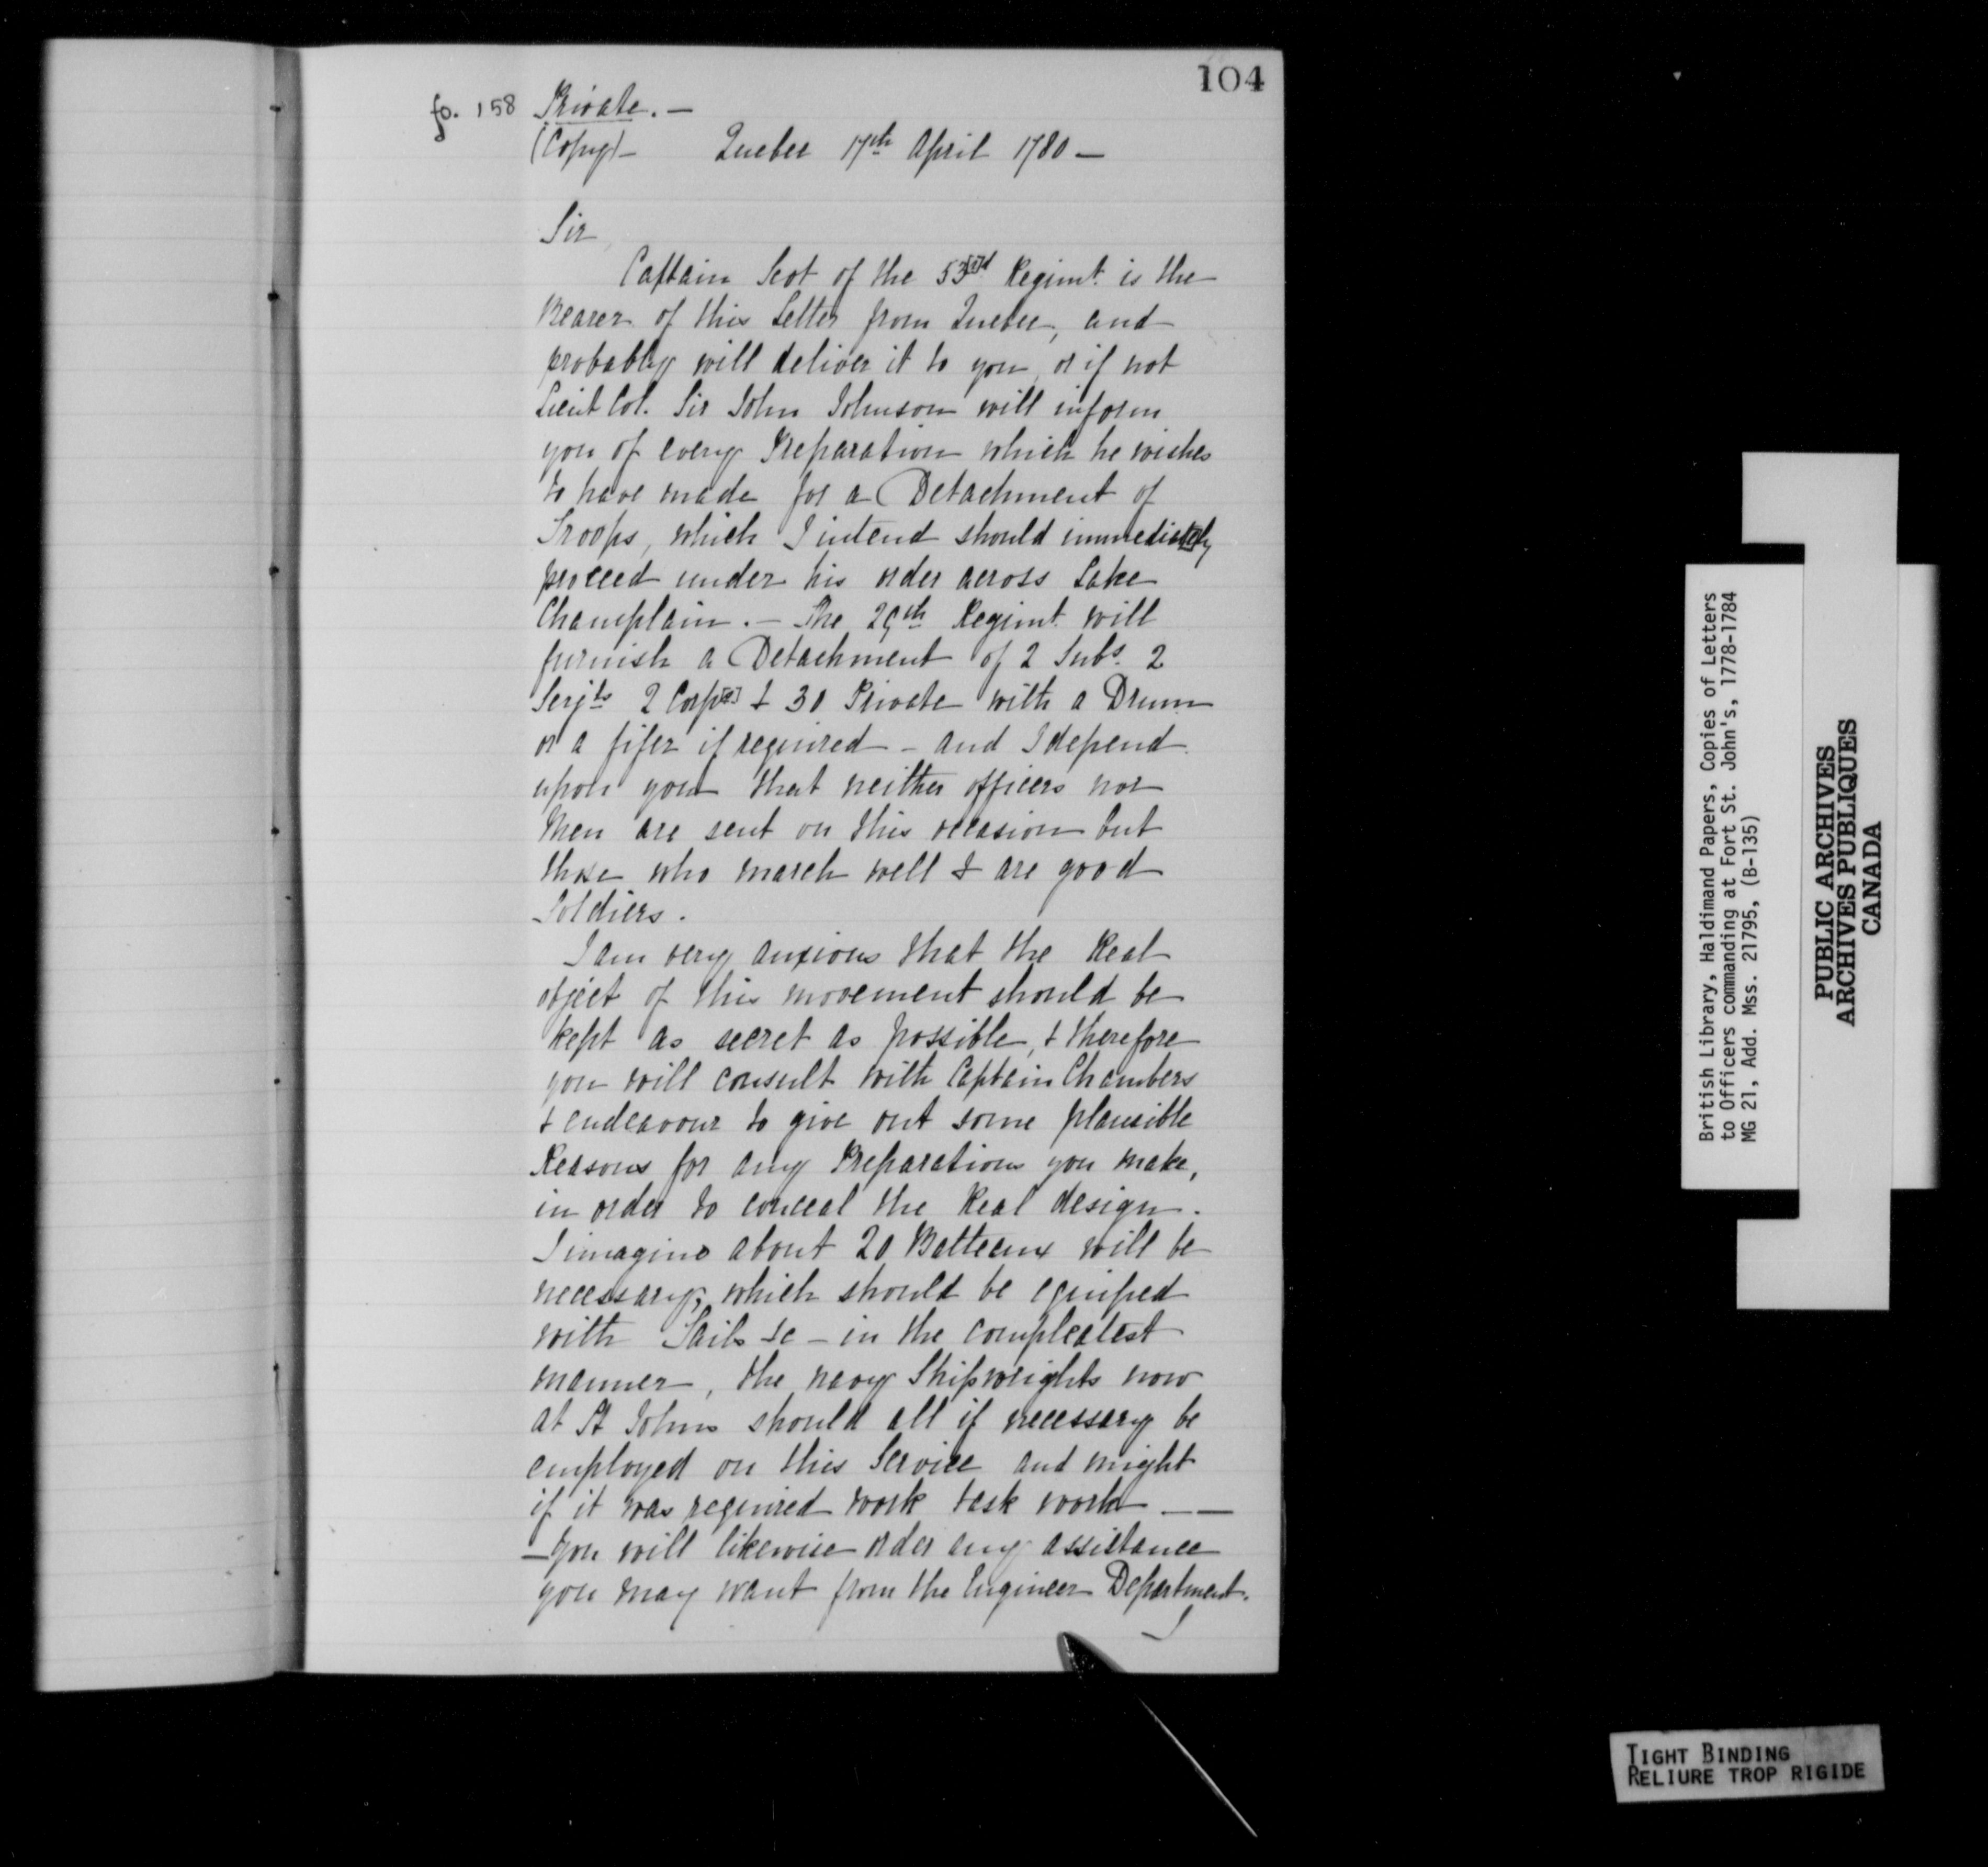 104
fo. 158 Private. —
(Copy) — Quebec 17th April 1780 —
Sir
Captain Scot of the 53[r]d Regimt. is the
Bearer of this Letter from Quebec, and
probably will deliver it to you, or if not
Lieut Col. Sir John Johnson will inform
you of every Preparation which he wishes
to have made for a Detachment of
Troops, which I intend should immediat[e]ly
proceed under his order across Lake
Champlain. — The 29th Regimt. will
furnish a Detachment of 2 Subs. 2
Serjts 2 Corp[s] & 30 Private with a Drum
or a fifer if required — and I depend
upon you that neither officers nor
Men are sent on this occasion but
those who march well & are good
Soldiers.
I am very anxious that the Real
object of this movement should be
kept as secret as possible, & therefore
you will consult with Captain Chambers
& endeavour to give out some plausible
Reasons for any Preparations you make,
in order to conceal the Real design.
I imagine about 20 Batteaux will be
necessary, which should be equiped
with Sails &c — in the compleatest
manner, the navy Shipwrights now
at St Johns should all if necessary be
employed on this Service and might
if it was required work task work — —
— you will likewise order any assistance
you may want from the Engineer Department.
I
British Library, Haldimand Papers, Copies of Letters
to Officers commanding at Fort St. John's, 1778-1784
MG 21, Add. Mss. 21795, (B-135)
PUBLIC ARCHIVES
ARCHIVES PUBLIQUES
CANADA
TIGHT BINDING
RELIURE TROP RIGIDE